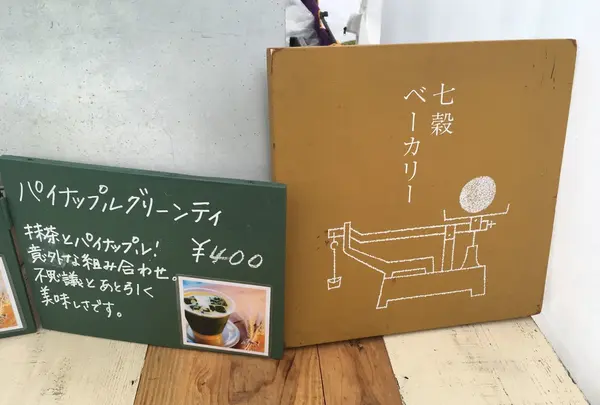 パイナップルグリーンティ
¥400
抹茶とパイナップル!
意外な組み合わせ。
不思議とあと引く
美味しさです。
七穀
ベーカリー